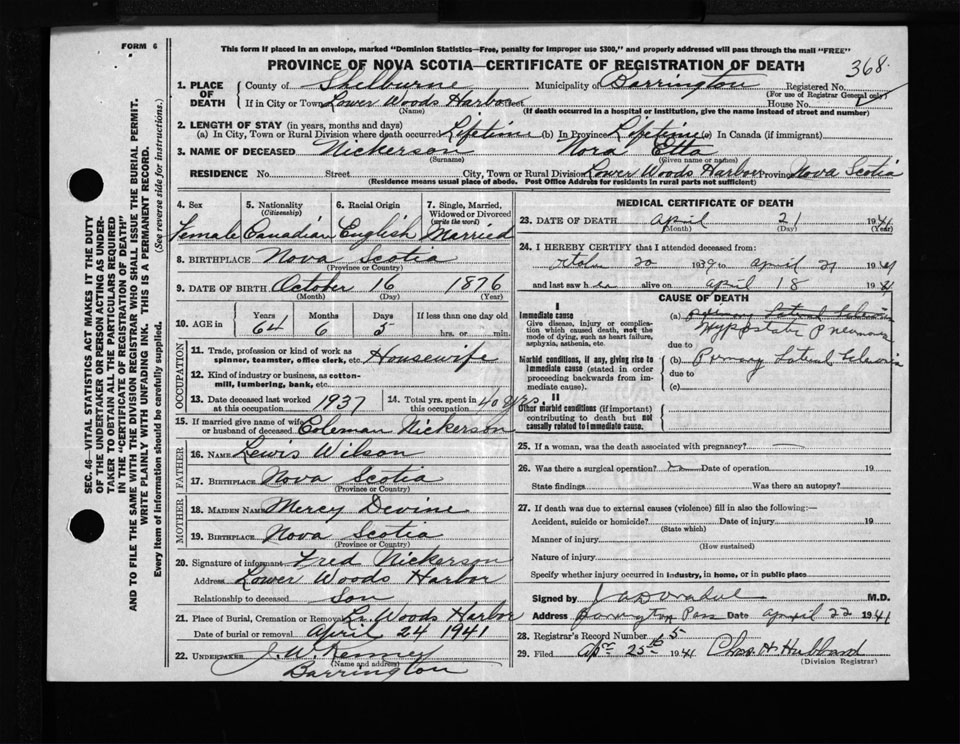 FORM 6
This form if placed in an envelope, marked "Dominion Statistics—Free, penalty for improper use $300," and properly addressed will pass through the mail "FREE"
PROVINCE OF NOVA SCOTIA—CERTIFICATE OF REGISTRATION OF DEATH
368
1. PLACE OF DEATH County of Shelburne Municipality of Barrington Registered No.
(For use of Registrar General only)
If in City or Town Lower Woods Harbor House No.
(Name) (If death occurred in a hospital or institution, give the name instead of street and number)
2. LENGTH OF STAY (in years, months and days)
(a) In City, Town or Rural Division where death occurred Lifetime (b) In Province Lifetime (c) In Canada (if immigrant)
3. NAME OF DECEASED Nickerson Nora Etta
(Surname) (Given name or names)
RESIDENCE No. Street City, Town or Rural Division Lower Woods Harbor Province Nova Scotia
(Residence means usual place of abode. Post Office Address for residents in rural parts not sufficient)
4. Sex 5. Nationality (Citizenship) 6. Racial Origin 7. Single, Married, Widowed or Divorced (write the word)
Female Canadian English Married
8. BIRTHPLACE Nova Scotia
(Province or Country)
9. DATE OF BIRTH October 16 1876
(Month) (Day) (Year)
10. AGE in Years Months Days If less than one day old
64 6 5 hrs. or min.
OCCUPATION
11. Trade, profession or kind of work as spinner, teamster, office clerk, etc. Housewife
12. Kind of industry or business, as cotton-mill, lumbering, bank, etc.
13. Date deceased last worked at this occupation 1937 14. Total yrs. spent in this occupation 40 yrs.
15. If married give name of wife or husband of deceased Coleman Nickerson
FATHER
16. NAME Lewis Wilson
17. BIRTHPLACE Nova Scotia
(Province or Country)
MOTHER
18. MAIDEN NAME Mercy Devine
19. BIRTHPLACE Nova Scotia
(Province or Country)
20. Signature of informant Fred Nickerson
Address Lower Woods Harbor
Relationship to deceased Son
21. Place of Burial, Cremation or Removal Lr. Woods Harbor
Date of burial or removal April 24 1941
22. UNDERTAKER J. W. Kenney
(Name and address)
Barrington
MEDICAL CERTIFICATE OF DEATH
23. DATE OF DEATH April 21 1941
(Month) (Day) (Year)
24. I HEREBY CERTIFY that I attended deceased from:
October 20 1939 to April 21 1941
and last saw her alive on April 18 1941
CAUSE OF DEATH
I
Immediate cause
Give disease, injury or complication which caused death, not the mode of dying, such as heart failure, asphyxia, asthenia, etc.
(a) Primary Lateral Sclerosis
Hypostatic Pneumonia
due to
Morbid conditions, if any, giving rise to immediate cause (stated in order proceeding backwards from immediate cause).
(b) Primary Lateral Sclerosis
due to
(c)
II
Other morbid conditions (if important) contributing to death but not causally related to immediate cause.
25. If a woman, was the death associated with pregnancy?
26. Was there a surgical operation? no Date of operation 19
State findings Was there an autopsy?
27. If death was due to external causes (violence) fill in also the following:—
Accident, suicide or homicide? Date of injury 19
(State which)
Manner of injury
(How sustained)
Nature of injury
Specify whether injury occurred in industry, in home, or in public place
Signed by M.D.
Address Barrington Pass Date April 22 1941
28. Registrar's Record Number 5
29. Filed Apr 25th 1941 Chas. H. Hubbard
(Division Registrar)
SEC. 46—VITAL STATISTICS ACT MAKES IT THE DUTY
OF THE UNDERTAKER OR PERSON ACTING AS UNDER-
TAKER TO OBTAIN ALL THE PARTICULARS REQUIRED
IN THE "CERTIFICATE OF REGISTRATION OF DEATH"
AND TO FILE THE SAME WITH THE DIVISION REGISTRAR WHO SHALL ISSUE THE BURIAL PERMIT.
WRITE PLAINLY WITH UNFADING INK. THIS IS A PERMANENT RECORD.
Every item of information should be carefully supplied. (See reverse side for instructions.)